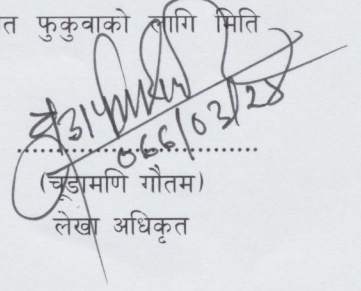 त फुकुवाको लागि मिति
०६६/०३/२८
(चूडामणि गौतम)
लेखा अधिकृत